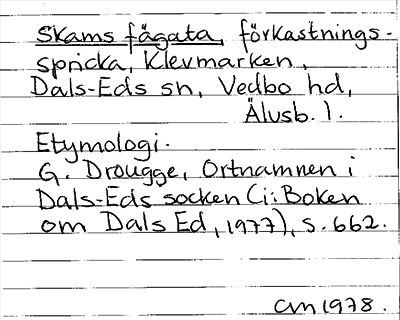 Skams fågata, förkastnings-
spricka, Klevmarken,
Dals-Eds sn, Vedbo hd,
Älvsb. l.
Etymologi.
G. Drougge, Ortnamnen i
Dals-Eds socken (i: Boken
om Dals Ed, 1977), s. 662.
CM 1978.